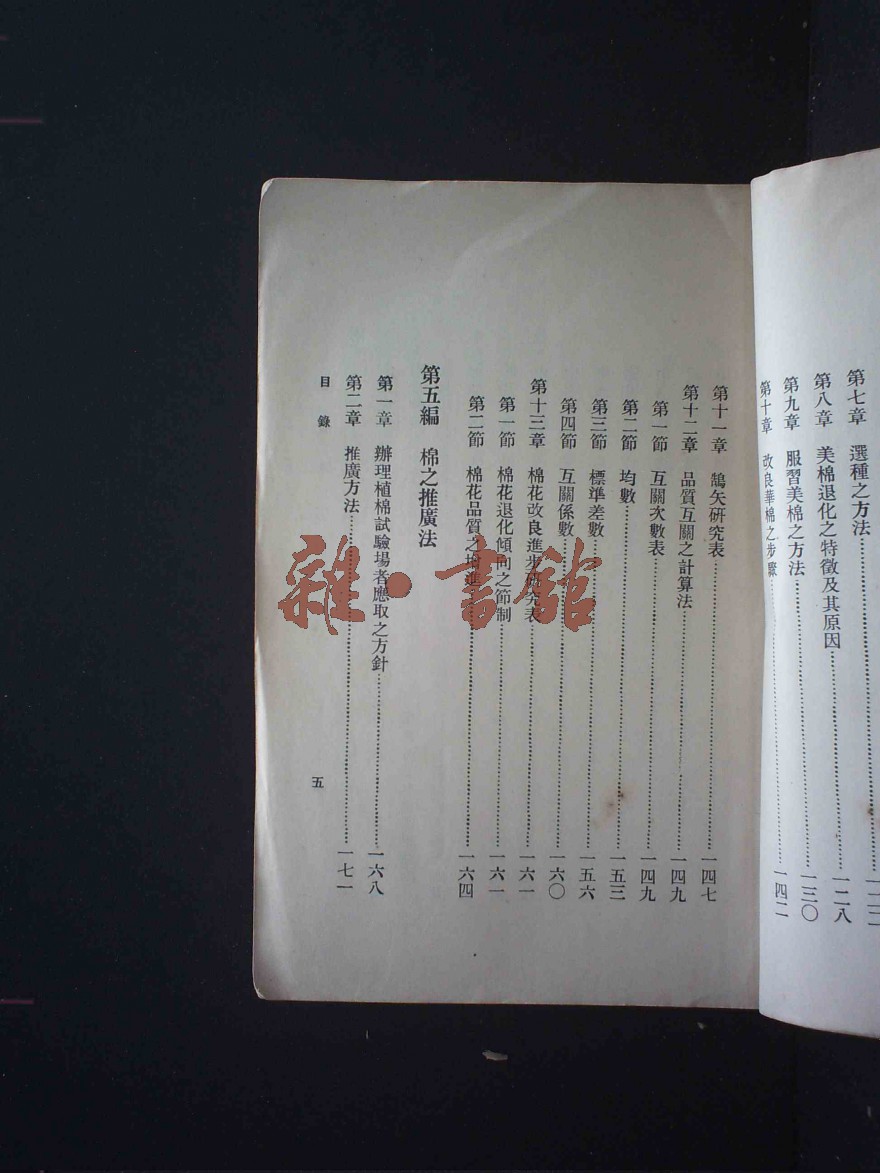 第七章 選種之方法
第八章 美棉退化之特徵及其原因 一二八
第九章 服習美棉之方法 一三〇
第十章 改良華棉之步驟 一四二
第十一章 鵠矢研究表 一四七
第十二章 品質互關之計算法 一四九
第一節 互關次數表 一四九
第二節 均數 一五三
第三節 標準差數 一五六
第四節 互關係數 一六〇
第十三章 棉花改良進步研究表 一六一
第一節 棉花退化傾向之節制 一六一
第二節 棉花品質之增進 一六四
第五編 棉之推廣法
第一章 辦理植棉試驗場者應取之方針 一六八
第二章 推廣方法 一七一
目錄 五
雜·書館